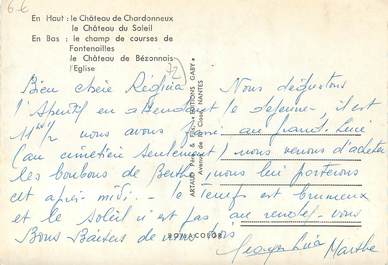 6€
En Haut : le Château de Chardonneux
le Château du Soleil
En Bas : le champ de courses de
Fontenailles
le Château de Bézonnais
l'Eglise
72
ARTAUD Père & Fils - EDITIONS GABY
Avenue de la Close, NANTES
Bien chère Régina Nous dégustons
l'Apéritif en attendant le déjeuner, il est
11h 1/2 nous avons passé au grand Lucé
(au cimetière seulement) nous venons d'acheter
les bonbons de Berthe, nous lui porterons
cet après midi. le temps est brumeux
et le soleil n'est pas au rendez-vous
Bons Baisers de nous trois
COLOR
Georges Marthe